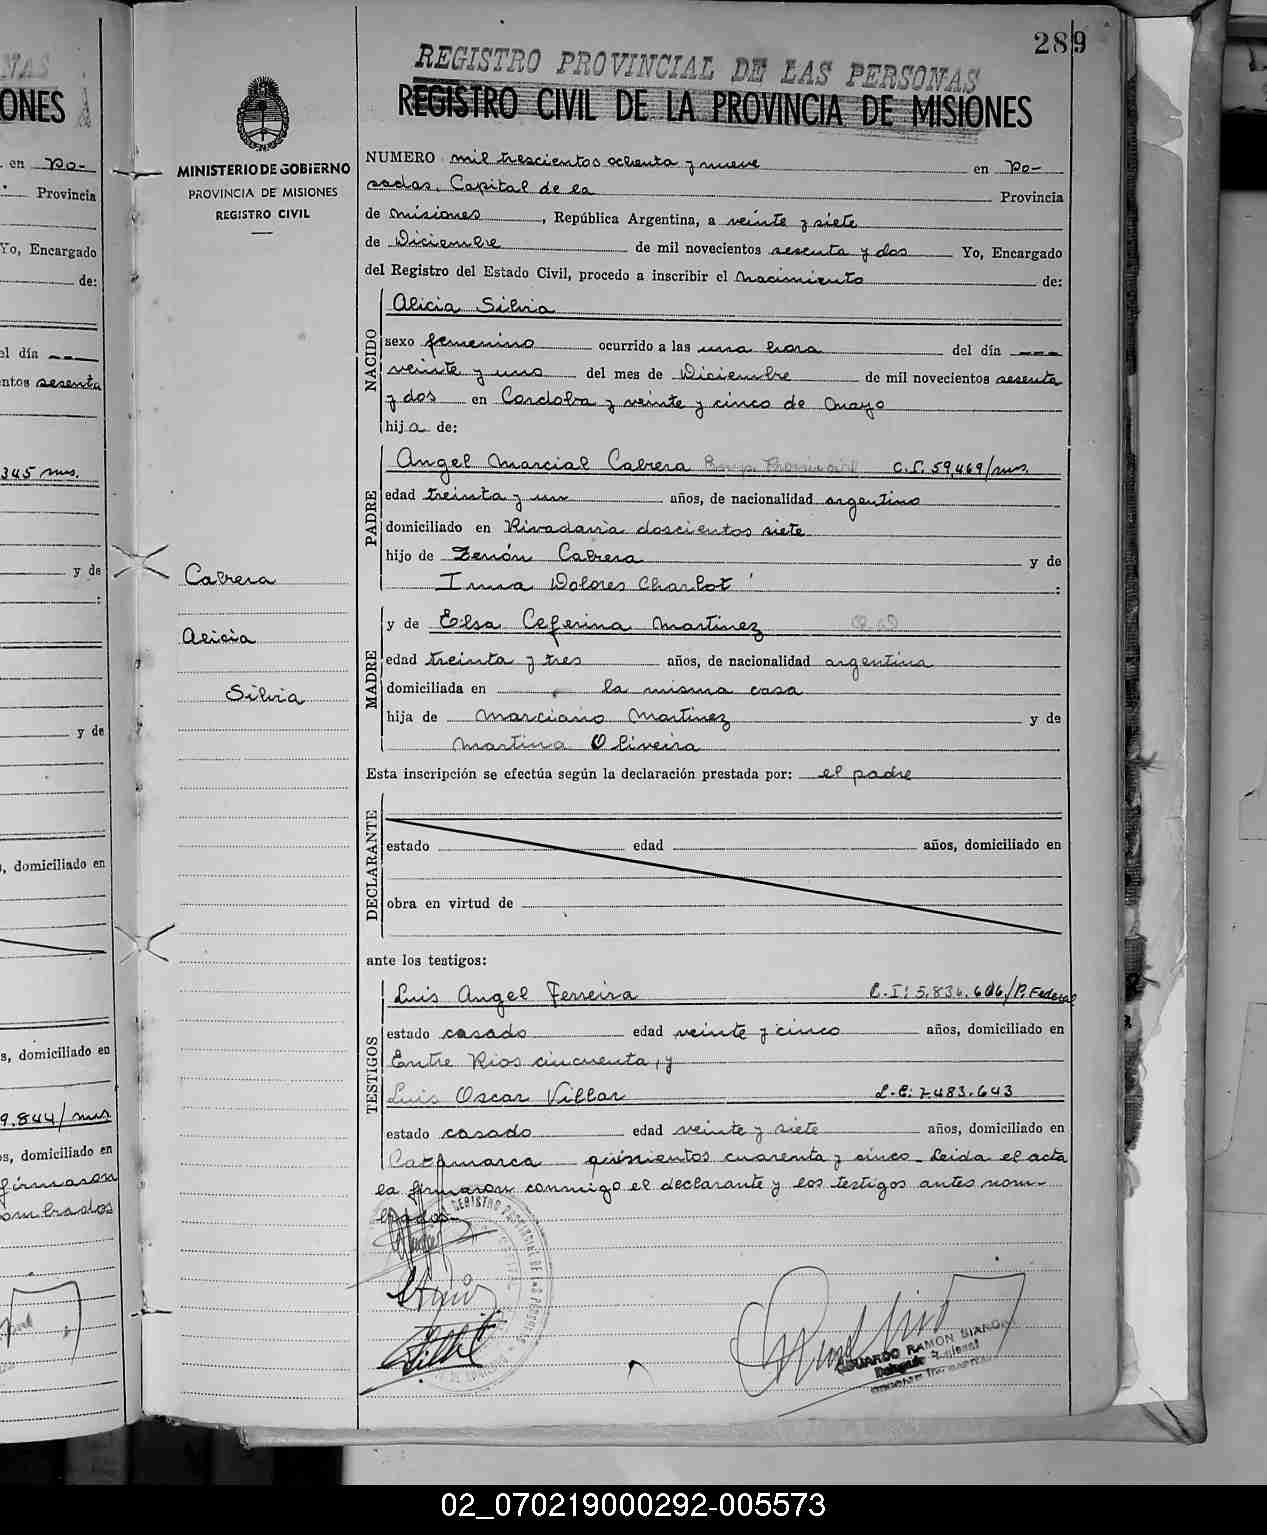 NAS
ONES
en Po-
Provincia
Yo, Encargado
de:
el día ---
entos sesenta
345 mns.
y de
:
y de
, domiciliado en
s, domiciliado en
9.844/mns
s, domiciliado en
firmaron
ombrados
MINISTERIO DE GOBIERNO
PROVINCIA DE MISIONES
REGISTRO CIVIL
Cabrera
Alicia
Silvia
289
REGISTRO PROVINCIAL DE LAS PERSONAS
REGISTRO CIVIL DE LA PROVINCIA DE MISIONES
NUMERO mil trescientos ochenta y nueve en Po-
sadas, Capital de la Provincia
de Misiones, República Argentina, a veinte y siete
de Diciembre de mil novecientos sesenta y dos Yo, Encargado
del Registro del Estado Civil, procedo a inscribir el Nacimiento de:
NACIDO
Alicia Silvia
sexo femenino ocurrido a las una hora del día ---
veinte y uno del mes de Diciembre de mil novecientos sesenta
y dos en Cordoba y veinte y cinco de Mayo
hija de:
PADRE
Angel Marcial Cabrera Emp. Provincial C.I. 59,469/mns.
edad treinta y un años, de nacionalidad argentino
domiciliado en Rivadavia doscientos siete
hijo de Zenón Cabrera y de
Irma Dolores Charlot :
MADRE
y de Elsa Ceferina Martinez Q D
edad treinta y tres años, de nacionalidad argentina
domiciliada en la misma casa
hija de Marciano Martinez y de
Martina Oliveira
Esta inscripción se efectúa según la declaración prestada por: el padre
DECLARANTE
estado edad años, domiciliado en
obra en virtud de
ante los testigos:
TESTIGOS
Luis Angel Ferreira C.I: 5.836.606/P. Federal
estado casado edad veinte y cinco años, domiciliado en
Entre Rios cincuenta, y
Luis Oscar Villar L.E: 7.483.643
estado casado edad veinte y siete años, domiciliado en
Catamarca quinientos cuarenta y cinco_Leida el acta
la firmaron conmigo el declarante y los testigos antes nom-
brados_
REGISTRO PROVINCIAL DE LAS PERSONAS
EDUARDO RAMON
Delegado
02_070219000292-005573